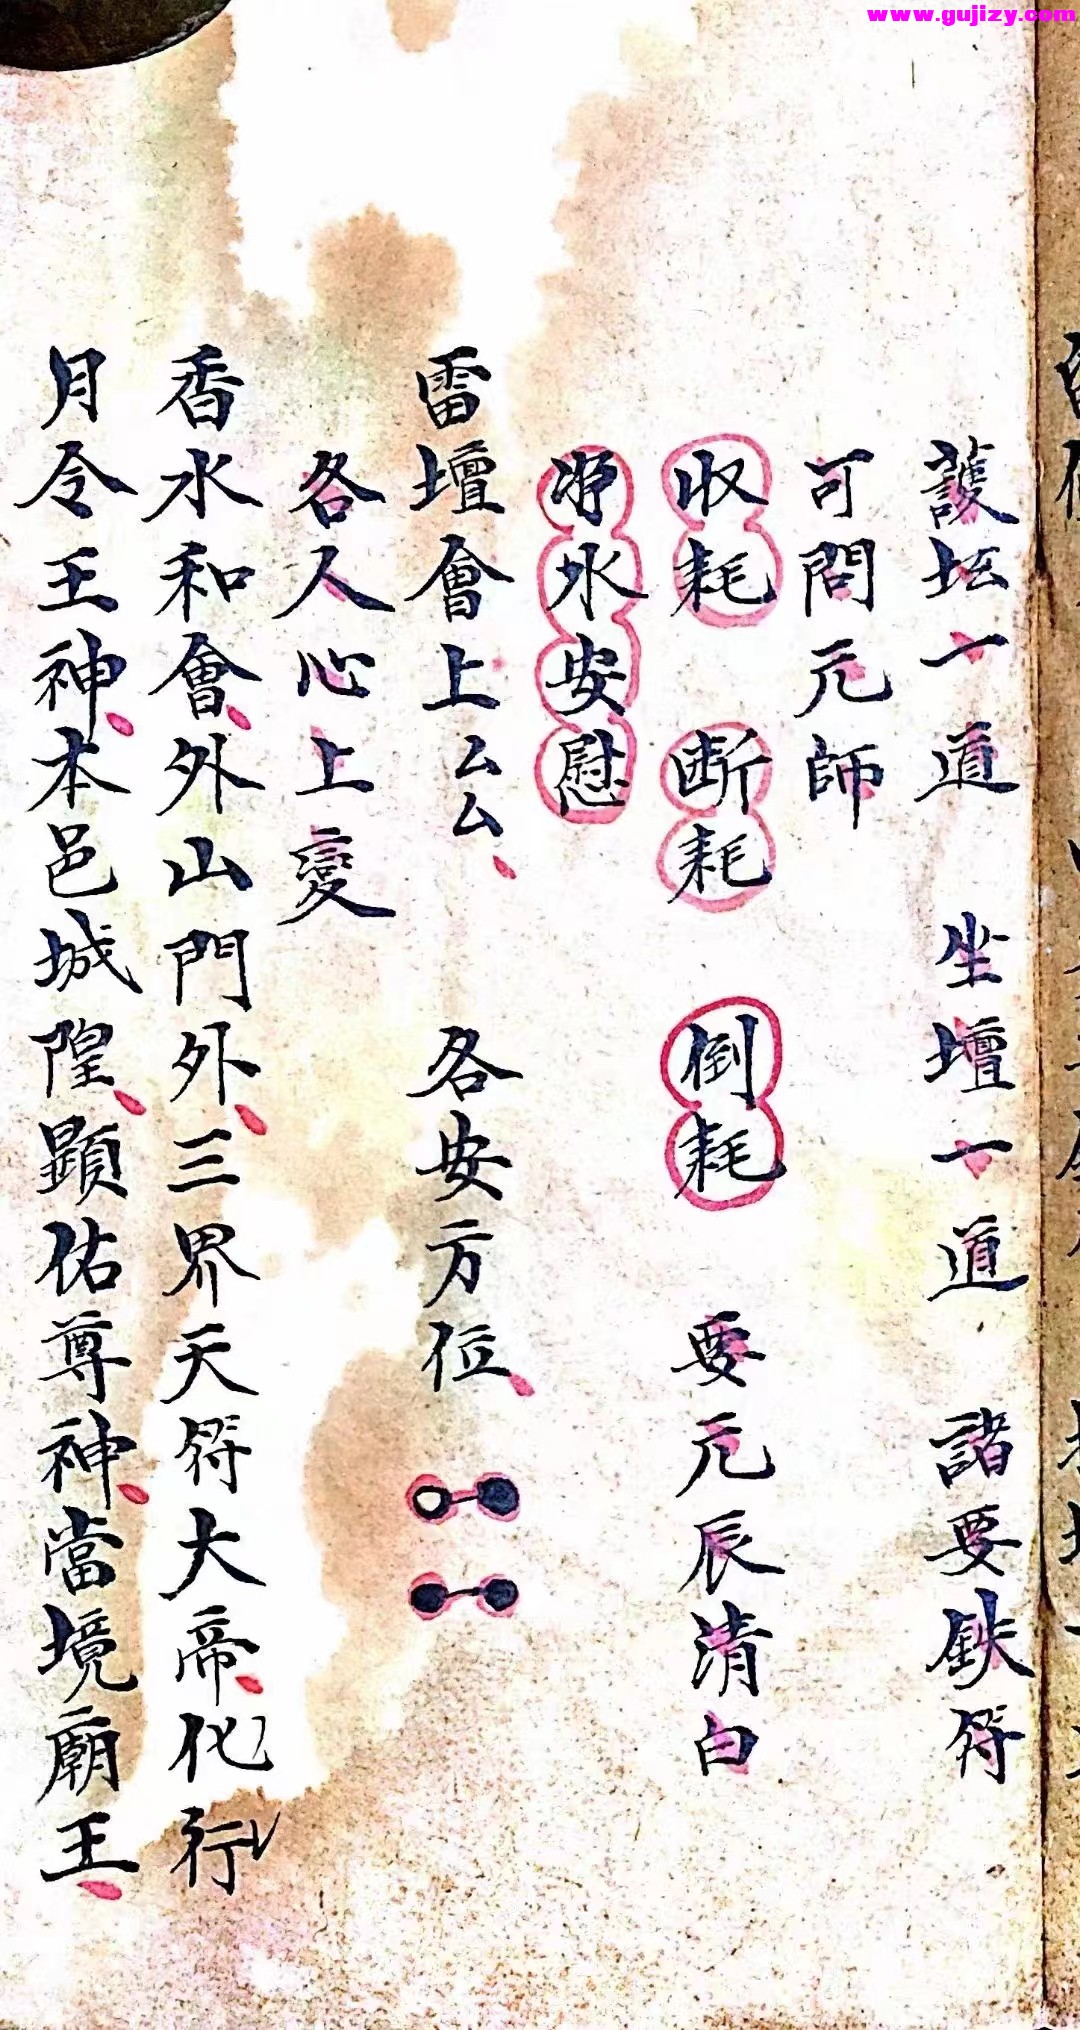 www.gujizy.com
護坛一道 坐壇一道 諸要鉄符
可問元師
收耗 断耗 倒耗 要元辰清白
净水安慰
雷壇會上厶厶 各安方位
各人心上變
香水和會外山門外三界天符大帝化行
月令王神本邑城隍顕佑尊神當境廟王